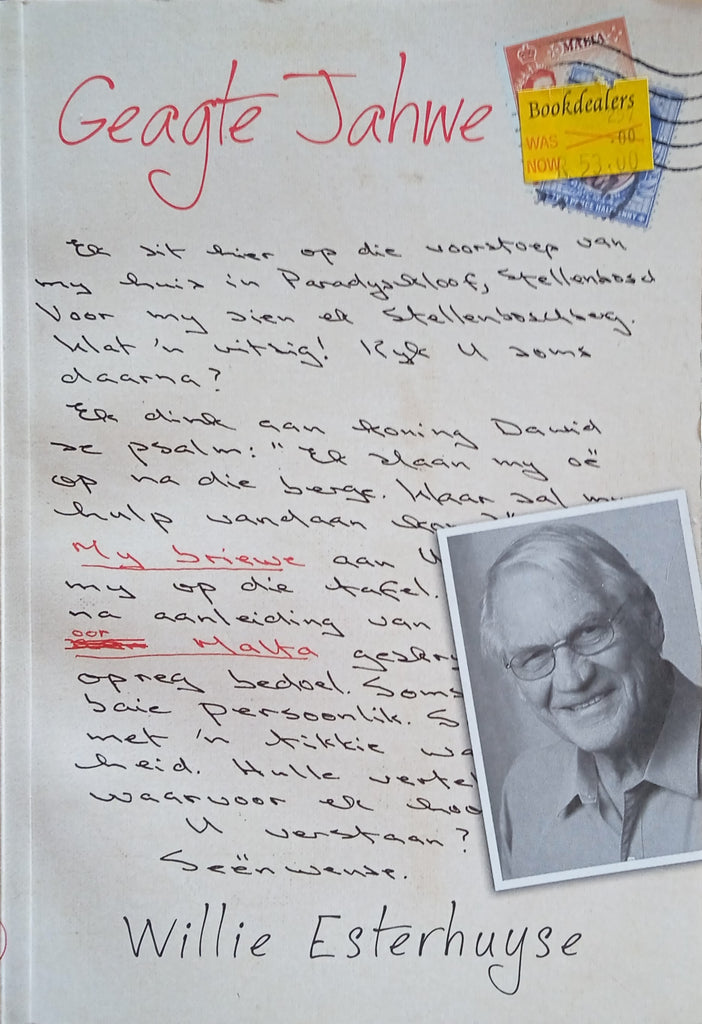 Geagte Jahwe
MALTA
Bookdealers
WAS .00
NOW R 53.00
Ek sit hier op die voorstoep van
my huis in Paradyskloof, Stellenbosch
Voor my sien ek Stellenboschberg.
Wat 'n uitsig! Kyk U soms
daarna?
Ek dink aan koning Dawid
se psalm: "Ek slaan my oë
op na die berge. Waar sal my
hulp vandaan
My briewe aan U
my op die tafel.
na aanleiding van
oor
Malta geskry
opreg bedoel. Soms
baie persoonlik. S
met 'n tikkie wa
heid. Hulle vertel
waarvoor ek hoo
U verstaan?
Seënwense.
Willie Esterhuyse